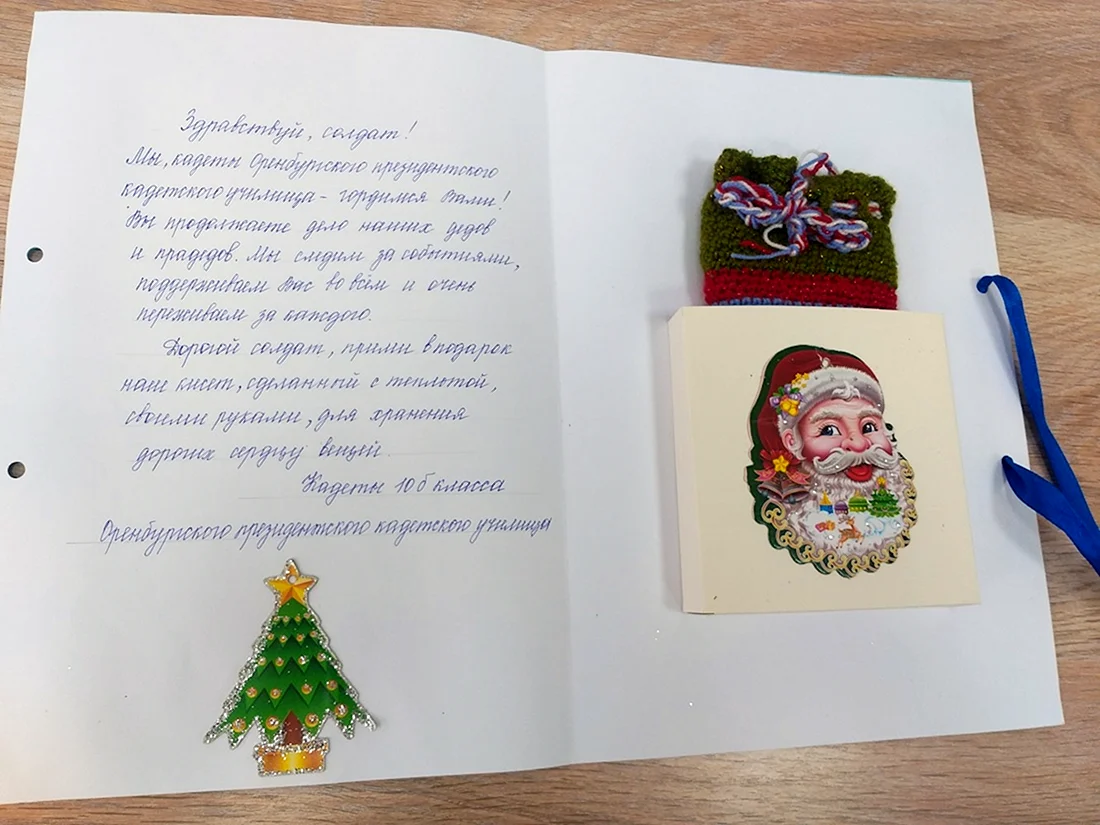 Здравствуй, солдат!
Мы, кадеты Оренбургского президентского
кадетского училища - гордимся Вами!
Вы продолжаете дело наших дедов
и прадедов. Мы следим за событиями,
поддерживаем Вас во всём и очень
переживаем за каждого.
Дорогой солдат, прими в подарок
наш кисет, сделанный с теплотой,
своими руками, для хранения
дорогих сердцу вещей.
Кадеты 10 б класса
Оренбургского президентского кадетского училища